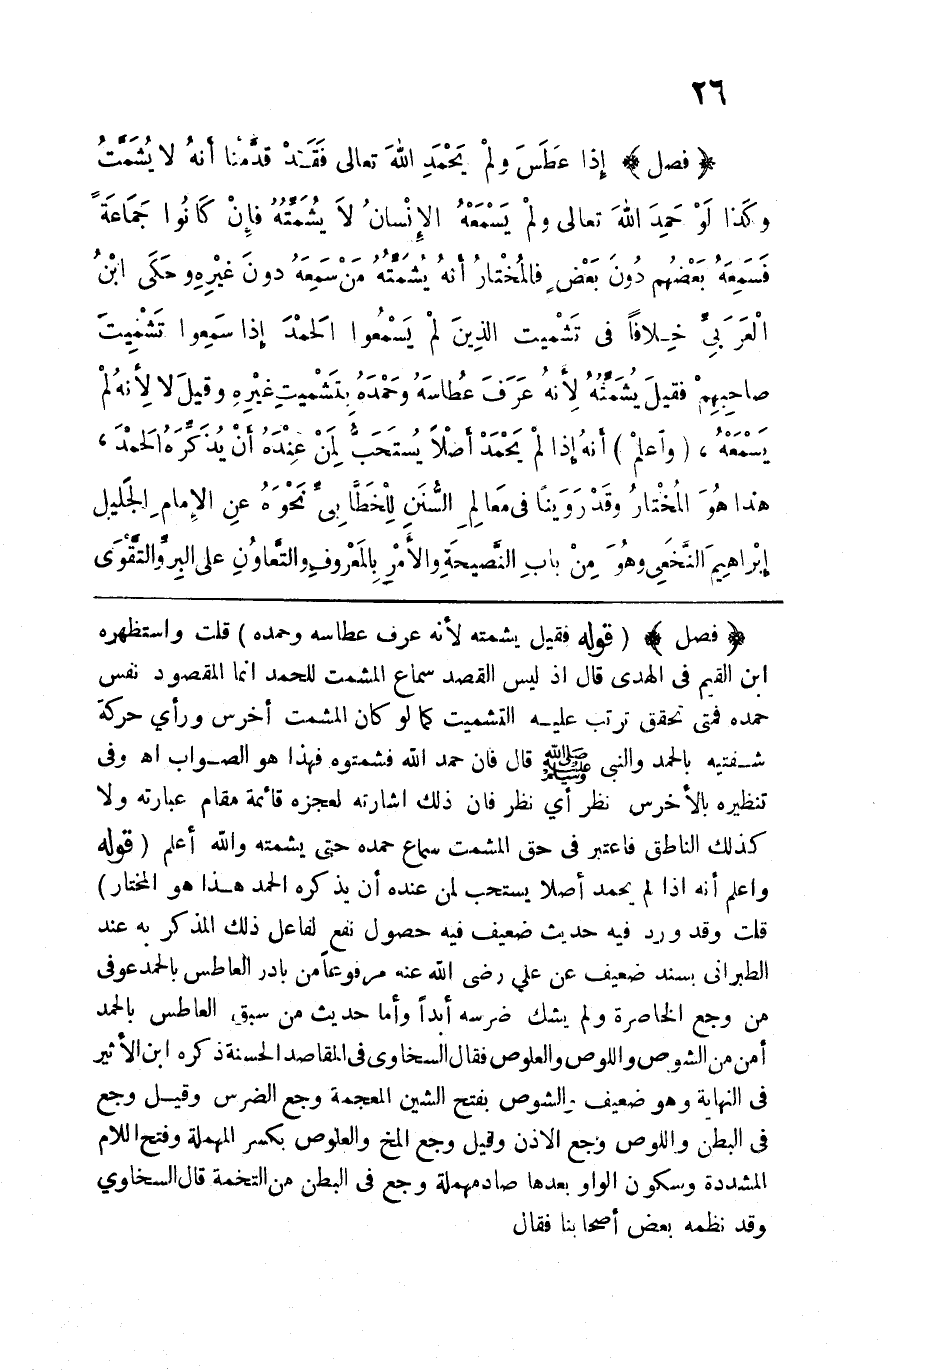 ٢٦
﴿ فصل ﴾ إذا عَطَسَ ولمْ يَحْمَدِ اللهَ تعالى فَقَـدْ قدَّمْنا أنهُ لا يُشَمَّتُ
وكَذا لَوْ حَمِدَ اللهَ تعالى ولمْ يَسْمَعْهُ الإنْسانُ لاَ يشَمِّتُهُ فإنْ كانُوا جَمَاعَةً
فَسَمِعَهُ بَعْضُهُم دُونَ بَعْضٍ فالمُخْتارُ أنهُ يُشَمِّتُهُ مَنْ سَمِعَهُ دونَ غيْرِهِ وحَكَى ابْنُ
الْعَرَبِيِّ خِـلافاً فى تَشْمِيت الذِينَ لمْ يَسْمَعُوا الحمْدَ إذا سَمِعوا تَشْمِيتَ
صاحِبِهِمْ فقيلَ يُشَمِّتُهُ لِأنهُ عَرَفَ عُطاسَهُ وحَمْدَهُ بِتَشْمِيتِ غيْرِهِ وقيلَ لا لِأنهُ لمْ
يَسْمَعْهُ ، ( واعلمْ ) أنهُ إذا لمْ يَحْمَدْ أصْلاً يُستَحَبُّ لِمَنْ عِنْدَهُ أنْ يُذَكِّرَهُ الحمْدَ ،
هذا هُوَ المُخْتارُ وقَدْ رَوَيْنا فى مَعالمِ السُّنَنِ لِلْخَطَّابِىِّ نَحْوَهُ عنِ الإمامِ الجَلِيل
إبْراهِيمَ النَّخَعِي وهُوَ مِنْ بابِ النَّصِيحَةِ والأمْرِ بِالمَعْرُوفِ والتَّعاوُنِ على البِرِّ والتَّقْوَى
﴿ فصل ﴾ ( قوله فقيل يشمته لأنه عرف عطاسه وحمده ) قلت واستظهره
ابن القيم فى الهدى قال اذ ليس القصد سماع المشمت للحمد انما المقصود نفس
حمده فمتى تحقق ترتب عليـه التشميت كما لو كان المشمت أخرس ورأي حركة
شـفتيه بالحمد والنبي ﷺ قال فان حمد الله فشمتوه فهذا هو الصـواب اه وفى
تنظيره بالأخرس نظر أي نظر فان ذلك اشارته لعجزه قائمة مقام عبارته ولا
كذلك الناطق فاعتبر فى حق المشمت سماع حمده حتى يشمته والله أعلم ( قوله
واعلم أنه اذا لم يحمد أصلا يستحب لمن عنده أن يذكره الحمد هـذا هو المختار )
قلت وقد ورد فيه حديث ضعيف فيه حصول نفع لفاعل ذلك المذكر به عند
الطبرانى بسند ضعيف عن علي رضى الله عنه مرفوعاً من بادر العاطس بالحمد عوفى
من وجع الخاصرة ولم يشك ضرسه أبداً وأما حديث من سبق العاطس بالحمد
أمن من الشوص واللوص والعلوص فقال السخاوى فى المقاصد الحسنة ذكره ابن الأثير
فى النهاية وهو ضعيف والشوص بفتح الشين المعجمة وجع الضرس وقيـل وجع
فى البطن واللوص وجع الاذن وقيل وجع المخ والعلوص بكسر المهملة وفتح اللام
المشددة وسكون الواو بعدها صاد مهملة وجع فى البطن من التخمة قال السخاوي
وقد نظمه بعض أصحابنا فقال